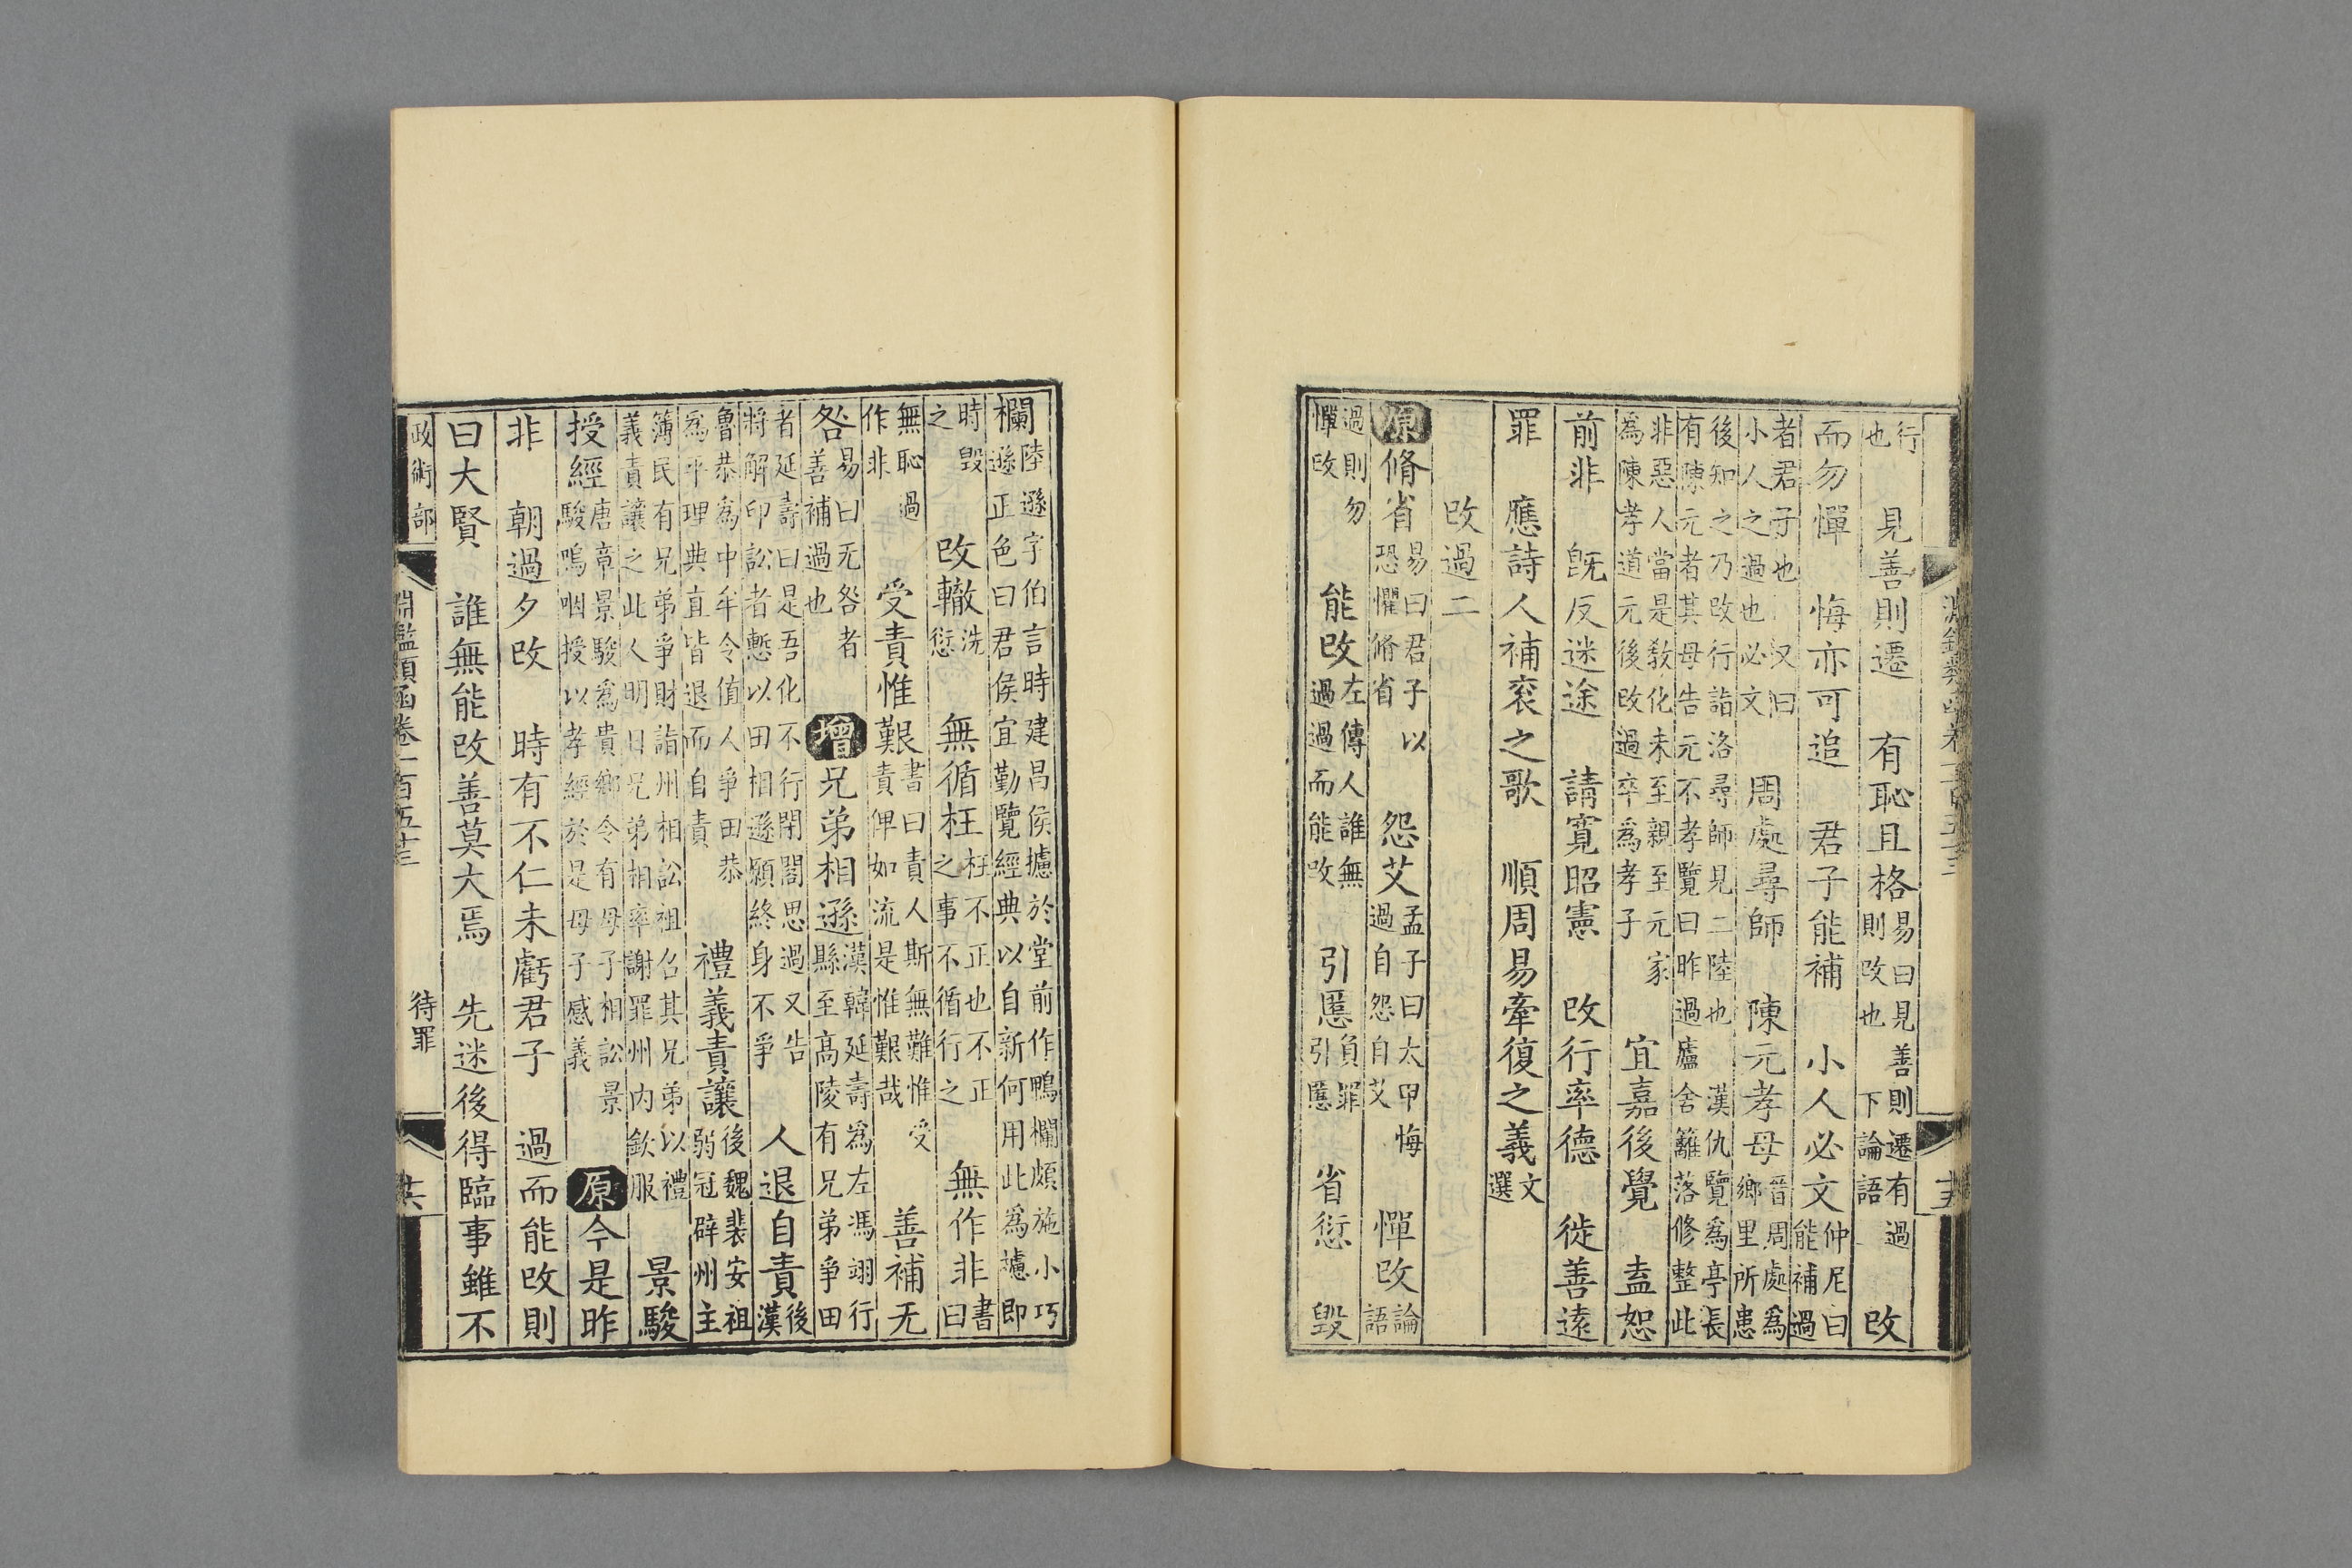 淵鑑類函卷一百五十三 十五
行也 見善則遷 有恥且格 易曰見善則遷有過則改也 下論語 改
而勿憚 悔亦可追 君子能補 小人必文 仲尼曰能補過
者君子也 又曰小人之過也必文 周處尋師 陳元孝母 晉周處為鄉里所患
後知之乃改行詣洛尋師見二陸也 漢仇覽為亭長有陳元者其母告元不孝覽曰昨過廬舍籬落修整此
非惡人當是敎化未至親至元家為陳孝道元後改過卒為孝子 宜嘉後覺 盍恕
前非 旣反迷途 請寬昭憲 改行率德 徙善遠
罪 應詩人補衮之歌 順周易牽復之義 文選
改過二
原 脩省 易曰君子以恐懼脩省 怨艾 孟子曰太甲悔過自怨自艾 憚改 論語
過則勿憚改 能改 左傳人誰無過過而能改 引慝 負罪引慝 省愆 毀
欄 陸遜字伯言時建昌侯攄於堂前作鴨欄頗施小巧遜正色曰君侯宜勤覽經典以自新何用此為攄即
時毀之 改轍 洗愆 無循枉 枉不正也不正之事不循行之 無作非 書曰
無恥過作非 受責惟艱 書曰責人斯無難惟受責俾如流是惟艱哉 善補无
咎 易曰无咎者善補過也 增 兄弟相遜 漢韓延壽為左馮翊行縣至高陵有兄弟爭田
者延壽曰是吾化不行閉閤思過又告將解印訟者慙以田相遜願終身不爭 人退自責 後漢
魯恭為中牟令値人爭田恭為平理典直皆退而自責 禮義責讓 後魏裴安祖弱冠辟州主
簿民有兄弟爭財詣州相訟祖召其兄弟以禮義責讓之此人明日兄弟相率謝罪州內欽服 景駿
授經 唐韋景駿為貴鄉令有母子相訟景駿嗚咽授以孝經於是母子感義 原 今是昨
非 朝過夕改 時有不仁未虧君子 過而能改則
曰大賢 誰無能改善莫大焉 先迷後得臨事雖不
政術部 淵鑑類函卷一百五十三 待罪 十六